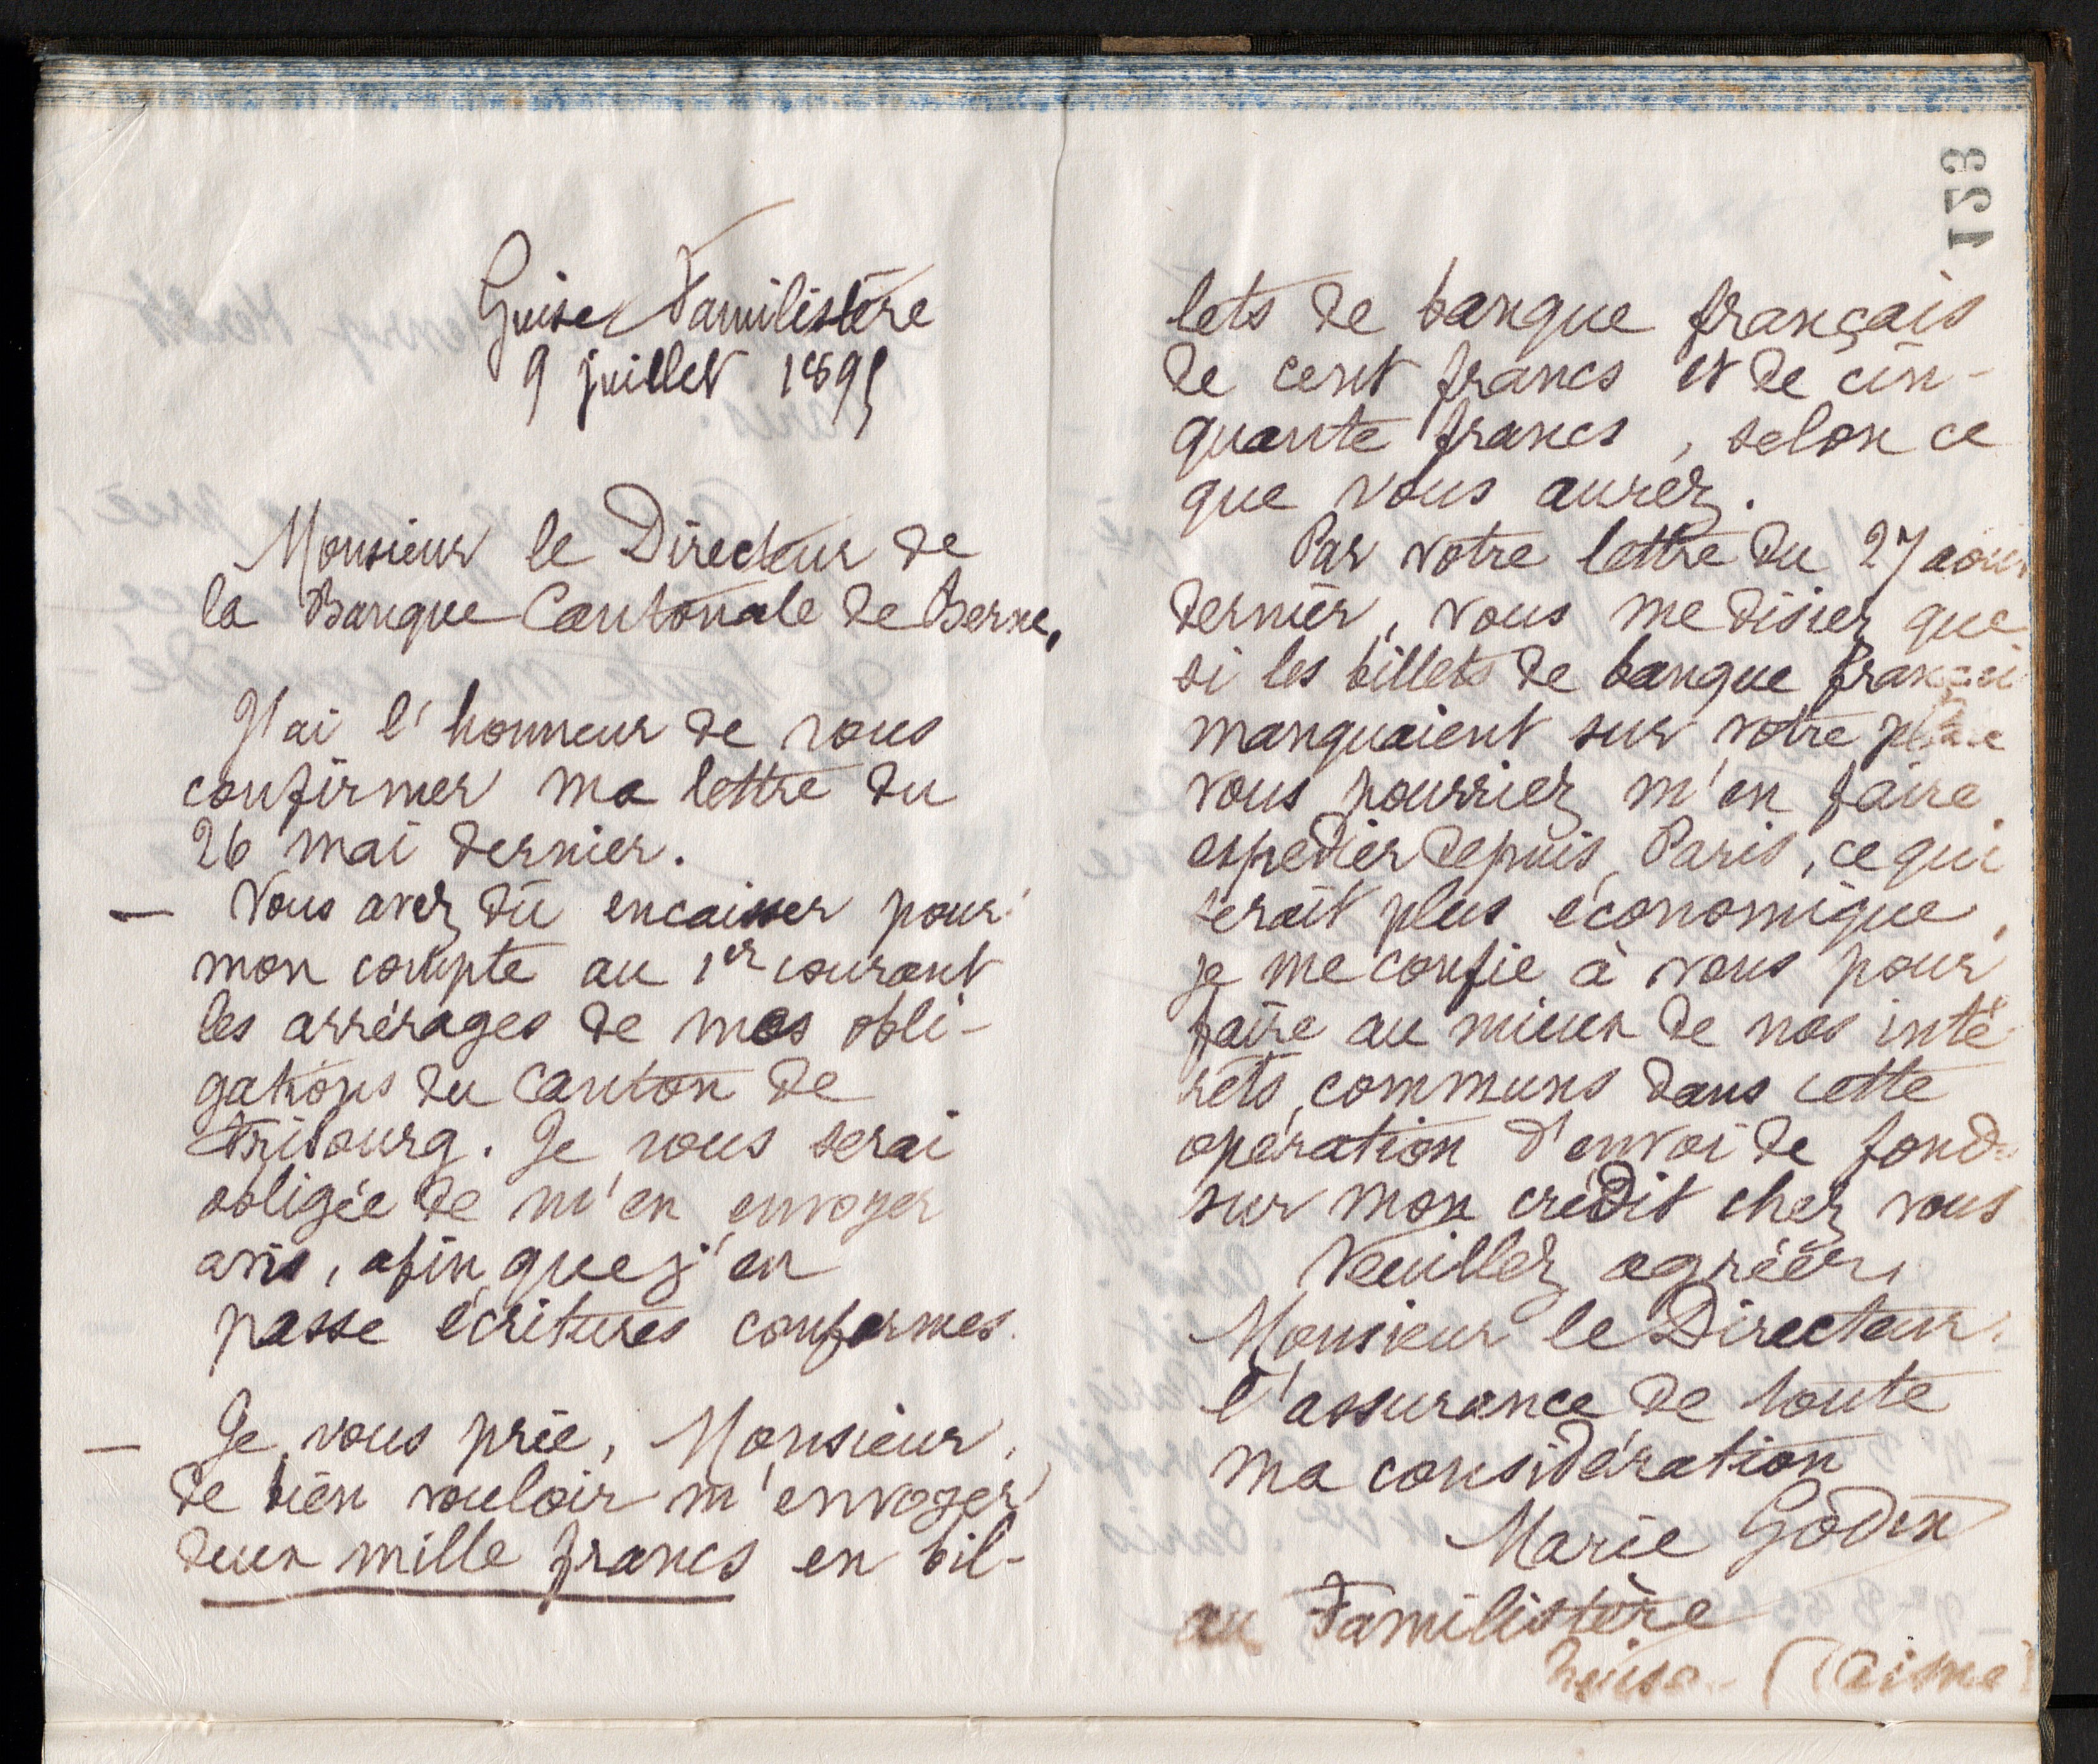 Guise Familistère
9 juillet 1895
Monsieur le Directeur de
la Banque Cantonale de Berne,
J'ai l'honneur de vous
confirmer ma lettre du
26 mai dernier.
— Vous avez dû encaisser pour
mon compte au 1er courant
les arrérages de mes obli-
gations du Canton de
Fribourg. Je vous serai
obligée de m'en envoyer
avis, afin que j'en
passe écritures conformes.
— Je vous prie, Monsieur,
de bien vouloir m'envoyer
deux mille francs en bil-
153
lets de banque français
de cent francs et de cin-
quante francs, selon ce
que vous aurez.
Par votre lettre du 27 août
dernier, vous me disiez que
si les billets de banque françai
manquaient sur votre place
vous pourriez m'en faire
espédier depuis Paris, ce qui
serait plus économique,
je me confie à vous pour
faire au mieux de nos inté
rêts communs dans cette
opération d'envoi de fonds
sur mon crédit chez vous
Veuillez agréer,
Monsieur le Directeur,
l'assurance de toute
ma considération
Marie Godin
au Familistère
Guise (Aisne)